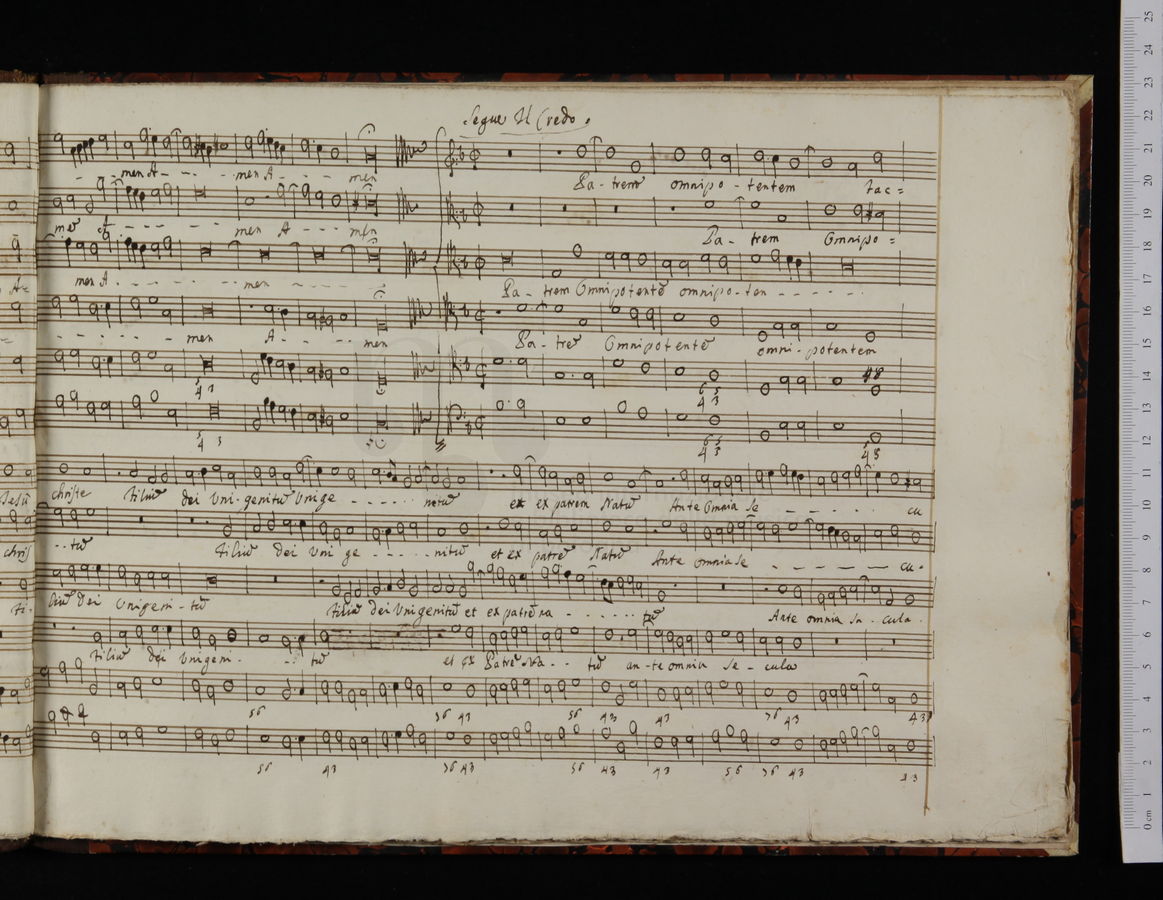 Segue Il Credo
- - men A - - - - men A - - - - men Pa - trem omnipo - tentem fac =
me A - - - - - men A - - - men Pa - trem Omnipo =
men A - - - - - - men - - - - - Pa - trem Omnipotente omnipo - ten - - - - -
- - - - - - men A - - - - - men Pa - tre Omnipotente omni - potentem
4 3 6 5 4 3 4 3
4 3 6 5 4 3
Jesu christe filiu dei Uni - genitu Unige - - - - - nitu et ex patrem Natu Ante Omnia se - - - - - cu
chris - - tu filiu Dei Uni ge - - - - - nitu et ex patre Natu Ante omnia se - - - - - cu -
fi - liu Dei Unigeni - tu filiu Dei Unigenitu et ex patre na - - - - - - tu Ante omnia se - cula
filiu dei Unigeni - - - tu et ex Patre Na - - tu an - te omnia se - cula
5 6 5 6 4 3 5 6 4 3 4 3 7 6 4 3 4 3
5 6 4 3 7 6 4 3 5 6 4 3 4 3 5 6 7 6 4 3 4 3
0 cm 1 2 3 4 5 6 7 8 9 10 11 12 13 14 15 16 17 18 19 20 21 22 23 24 25